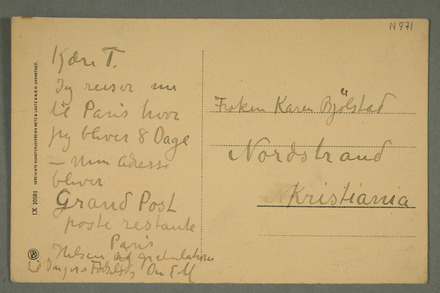 N 971
Kjære T.
Jeg reiser nu
til Paris hvor
jeg bliver 8 Dage
– min adresse
bliver
Grand Post
poste restante
Paris
Hilsen og gratulation
til Ingers Fødselsd. E M
Frøken Karen Bjölstad
Nordstrand
Kristiania